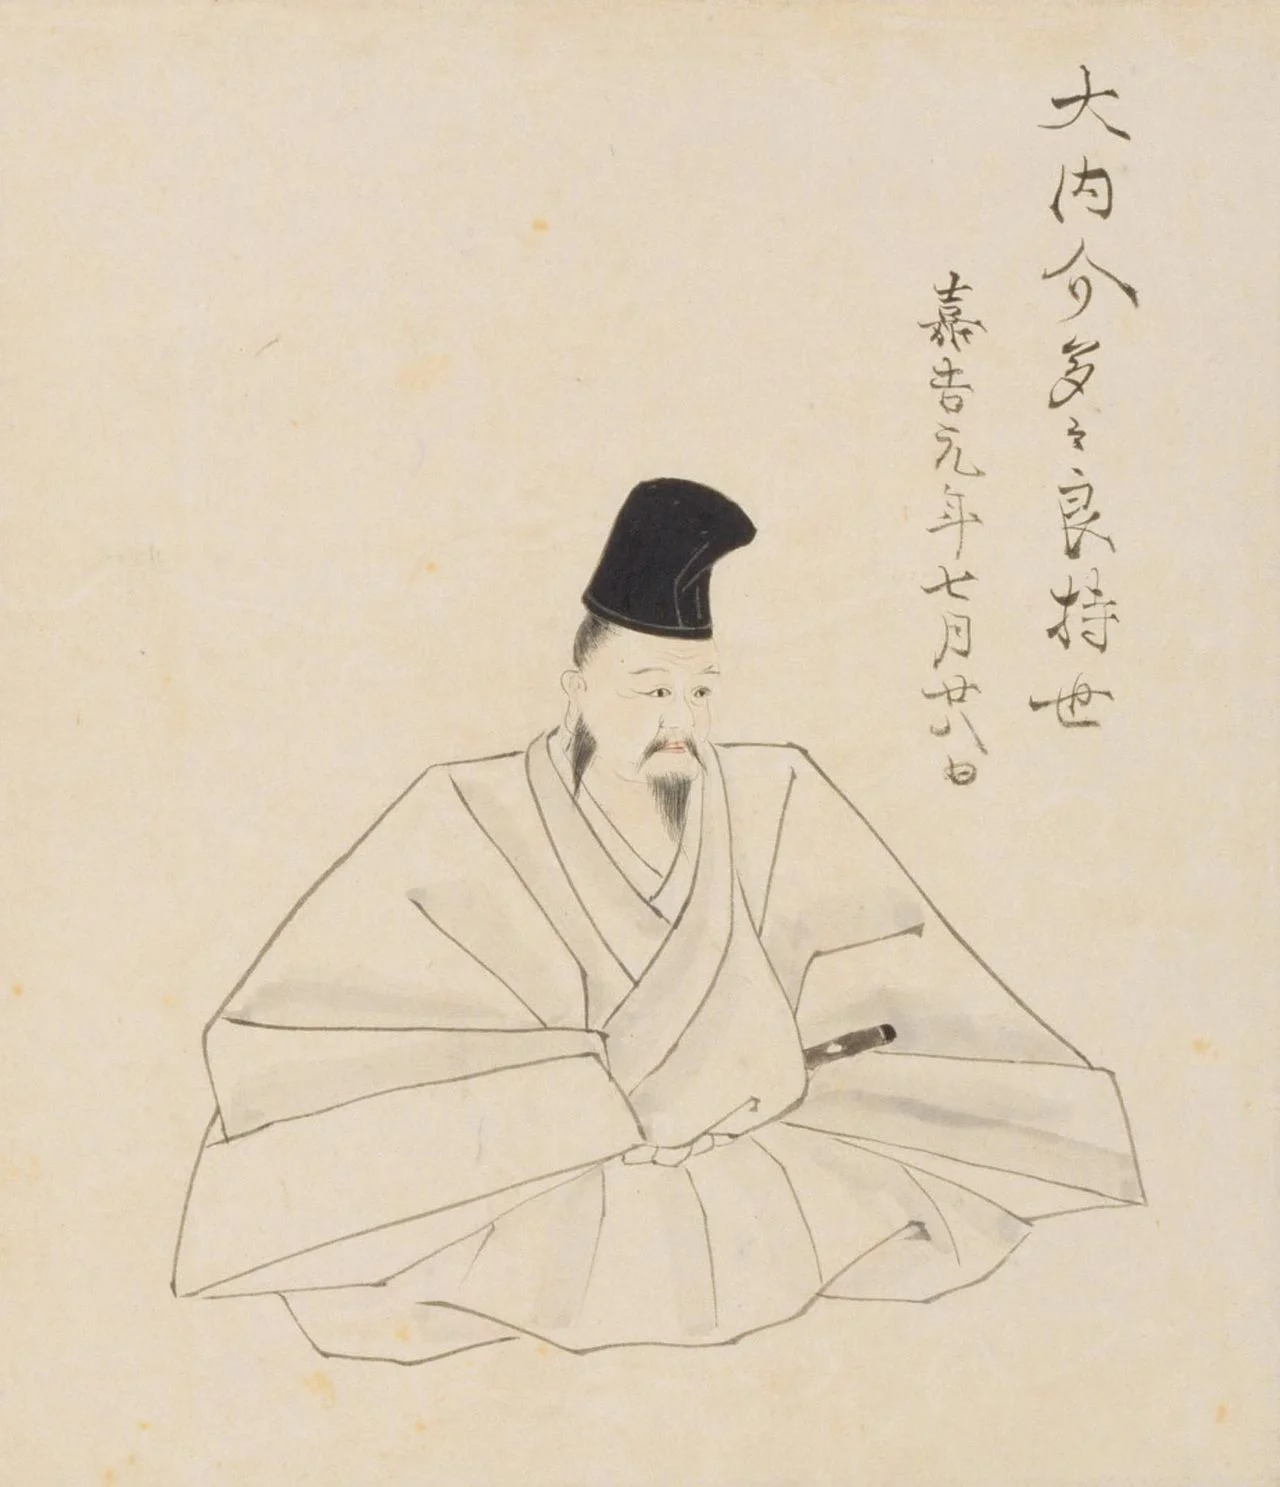 大内介多々良持世
嘉吉元年七月廿八日